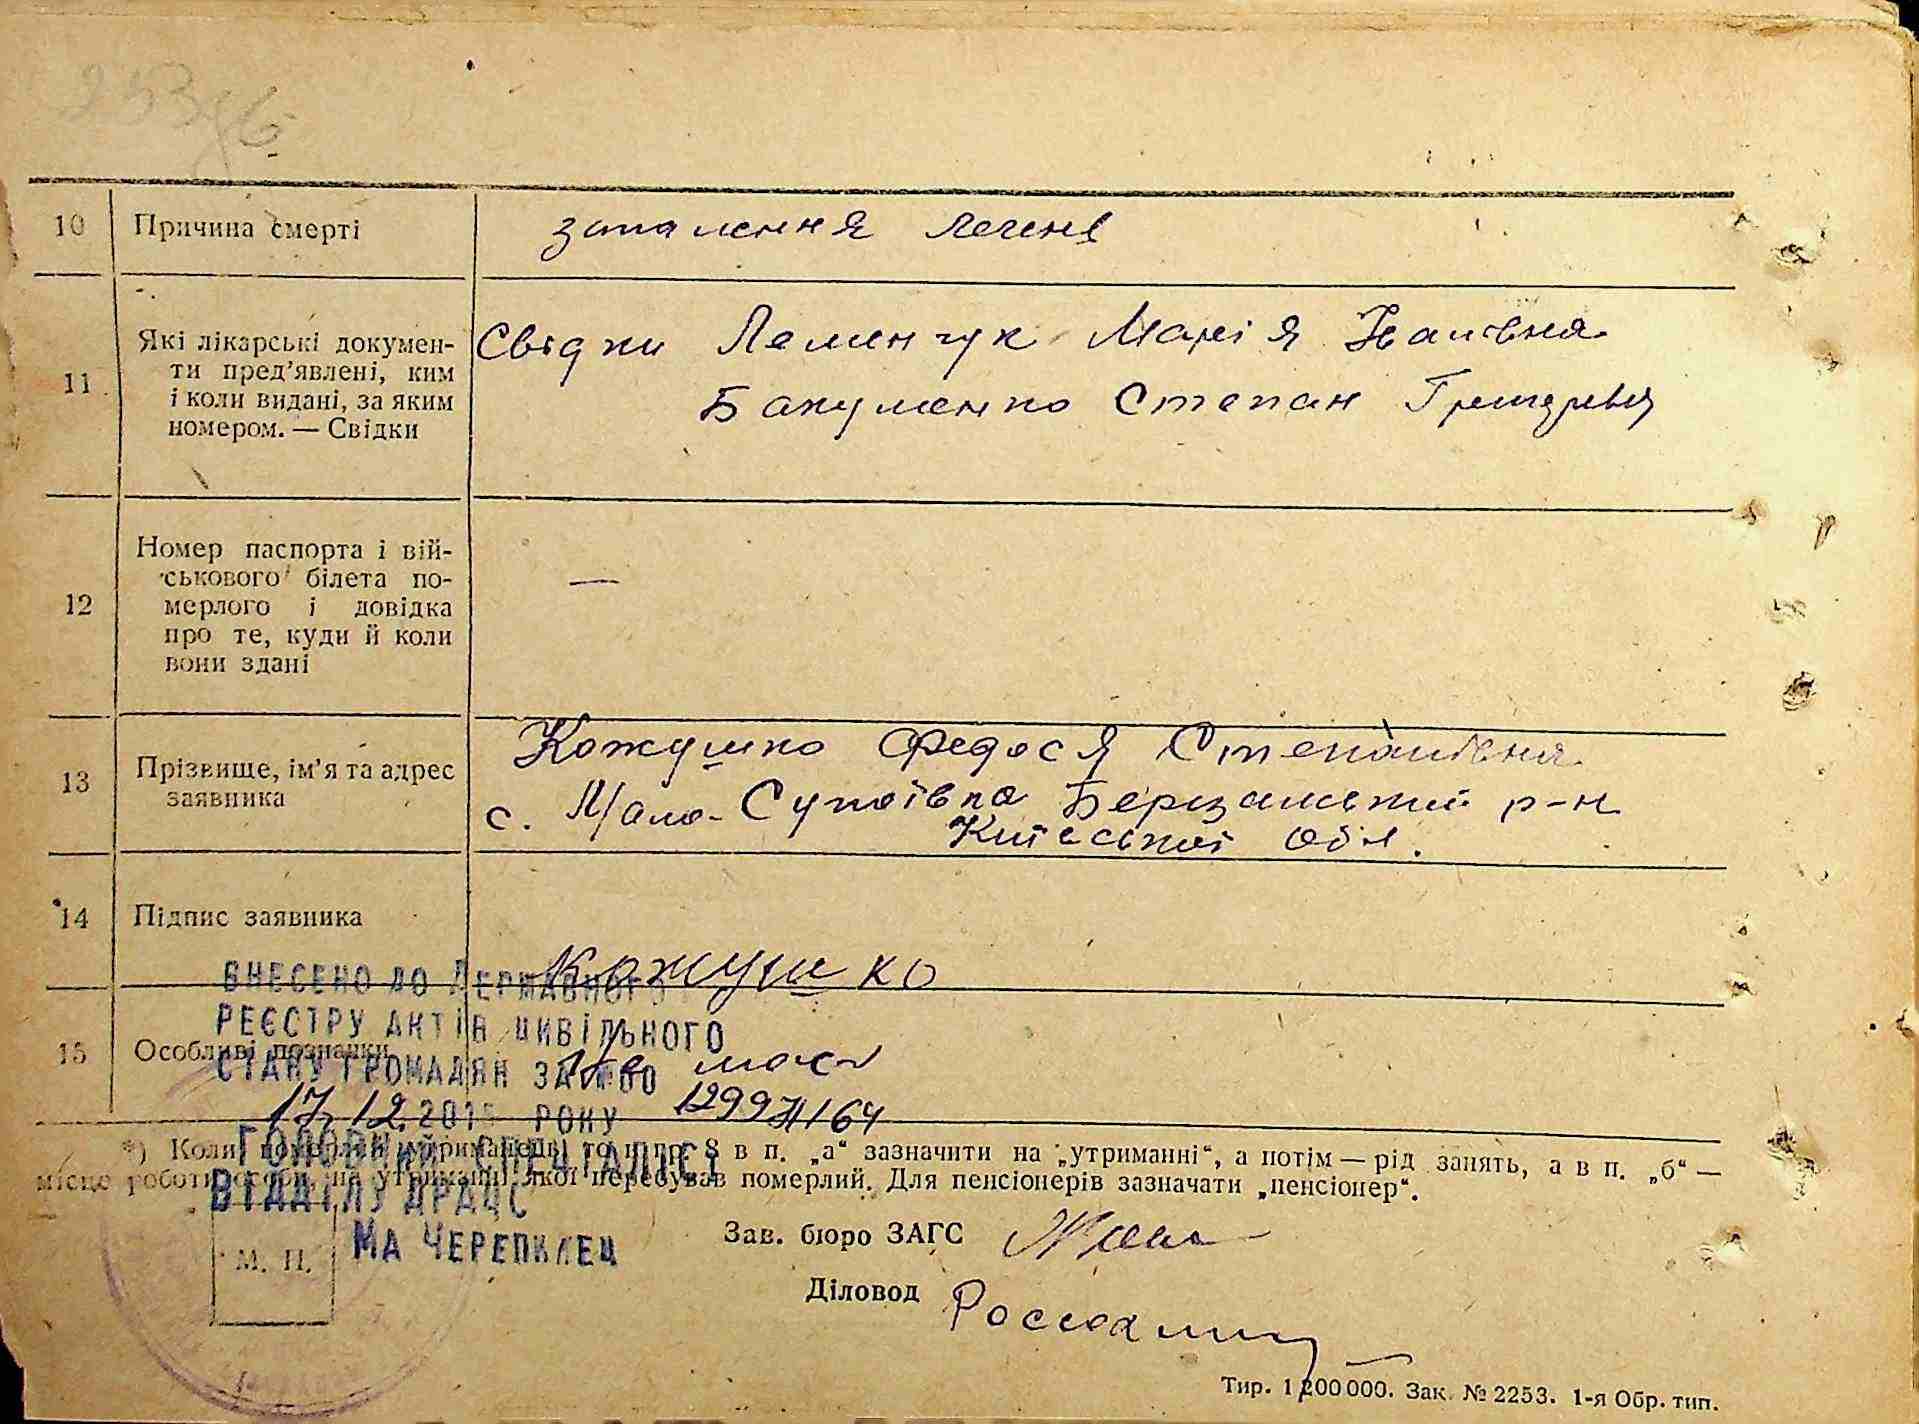 253
10 Причина смерті запалення печені
11 Які лікарські докумен-
ти пред’явлені, ким
і коли видані, за яким
номером. — Свідки
Свідки Леменчук Марія Іванівна
Бакуменко Степан
12 Номер паспорта і вій-
ськового білета по-
мерлого і довідка
про те, куди й коли
вони здані
—
13 Прізвище, ім’я та адрес
заявника
Кожушко Федося Степанівна
с. Мало-Супоївка Березанський р-н
Київської обл.
14 Підпис заявника
Кожушко
ВНЕСЕНО ДО ДЕРЖАВНОГО
РЕЄСТРУ АКТІВ ЦИВІЛЬНОГО
15 Особливі познаки
СТАНУ ГРОМАДЯН ЗА №00
17.12.201 РОКУ
*) Коли померлий утриманець, то в гр. 8 в п. „а“ зазначити на „утриманні“, а потім — рід занять, а в п. „б“ —
місце роботи особи, на утриманні якої перебував померлий. Для пенсіонерів зазначати „пенсіонер“.
ГОЛОВНИЙ СПЕЦІАЛІСТ
ВІДДІЛУ ДРАЦС
МА ЧЕРЕПИЛЕЦ
М. П.
Зав. бюро ЗАГС
Діловод
Тир. 1 200 000. Зак. № 2253. 1-я Обр. тип.